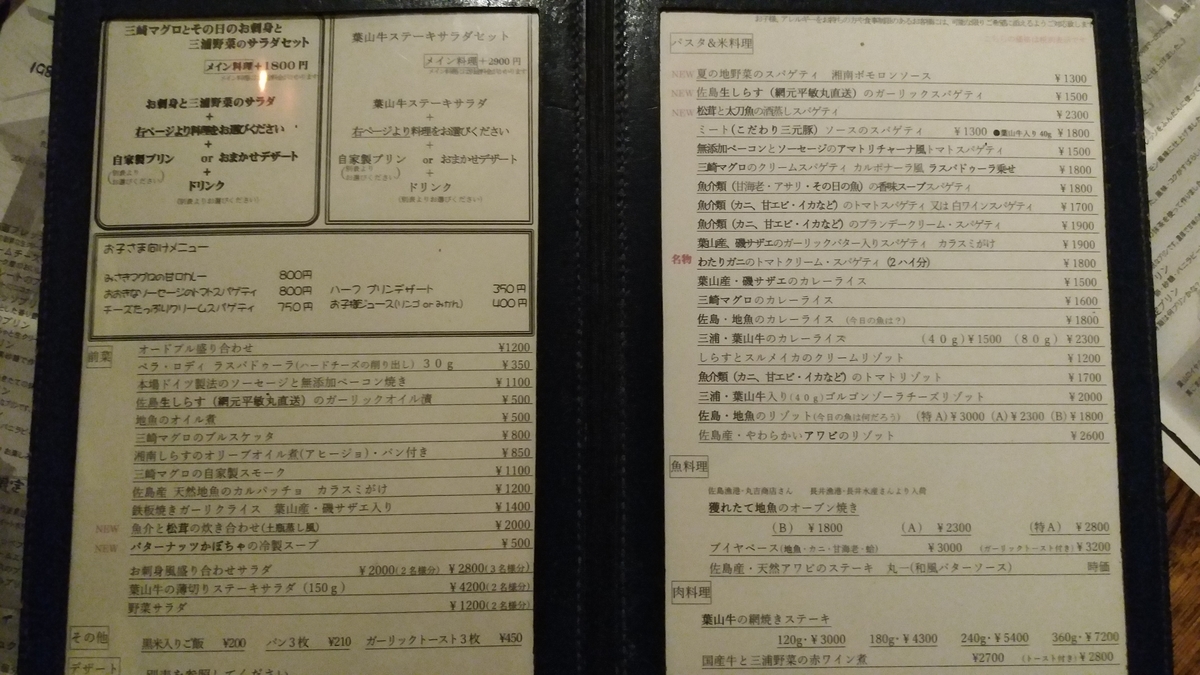 三崎マグロとその日のお刺身と
三浦野菜のサラダセット
メイン料理+1800円
お刺身と三浦野菜のサラダ
+
右ページより料理をお選びください
+
自家製プリン or おまかせデザート
(別表より
お選びください)
+
ドリンク
(別表よりお選びください)
葉山牛ステーキサラダセット
メイン料理+2900円
葉山牛ステーキサラダ
+
右ページより料理をお選びください
+
自家製プリン or おまかせデザート
(別表より
お選びください)
+
ドリンク
(別表よりお選びください)
お子さま向けメニュー
みさきマグロの甘口カレー 800円
おおきなソーセージのトマトスパゲティ 800円
チーズたっぷりクリームスパゲティ 750円
ハーフ プリンデザート 350円
お子様ジュース(リンゴ or みかん) 400円
前菜
オードブル盛り合わせ ¥1200
ベラ・ロディ ラスパドゥーラ(ハードチーズの削り出し) 30g ¥350
本場ドイツ製法のソーセージと無添加ベーコン焼き ¥1100
佐島生しらす (網元平敏丸直送) のガーリックオイル漬 ¥500
地魚のオイル煮 ¥500
三崎マグロのブルスケッタ ¥800
湘南しらすのオリーブオイル煮(アヒージョ)・パン付き ¥850
三崎マグロの自家製スモーク ¥1100
佐島産 天然地魚のカルパッチョ カラスミがけ ¥1200
鉄板焼きガーリックライス 葉山産・磯サザエ入り ¥1400
NEW 魚介と松茸の炊き合わせ(土瓶蒸し風) ¥2000
NEW バターナッツかぼちゃの冷製スープ ¥500
お刺身風盛り合わせサラダ ¥2000(2名様分) ¥2800(3名様分)
葉山牛の薄切りステーキサラダ (150g) ¥4200(2名様分)
野菜サラダ ¥1200(2名様分)
その他
黒米入りご飯 ¥200 パン3枚 ¥210 ガーリックトースト3枚 ¥450
デザート
パスタ&米料理
NEW 夏の地野菜のスパゲティ 湘南ポモロンソース ¥1300
NEW 佐島生しらす (網元平敏丸直送) のガーリックスパゲティ ¥1500
NEW 松茸と太刀魚の酒蒸しスパゲティ ¥2300
ミート(こだわり三元豚) ソースのスパゲティ ¥1300 ●葉山牛入り 40g ¥1800
無添加ベーコンとソーセージのアマトリチャーナ風トマトスパゲティ ¥1500
三崎マグロのクリームスパゲティ カルボナーラ風 ラスパドゥーラ乗せ ¥1800
魚介類 (甘海老・アサリ・その日の魚) の香味スープスパゲティ ¥1800
魚介類 (カニ、甘エビ・イカなど) のトマトスパゲティ 又は 白ワインスパゲティ ¥1700
魚介類 (カニ、甘エビ・イカなど) のブランデークリーム・スパゲティ ¥1900
葉山産、磯サザエのガーリックバター入りスパゲティ カラスミがけ ¥1900
名物 わたりガニのトマトクリーム・スパゲティ (2ハイ分) ¥1800
葉山産・磯サザエのカレーライス ¥1500
三崎マグロのカレーライス ¥1600
佐島・地魚のカレーライス (今日の魚は?) ¥1800
三浦・葉山牛のカレーライス (40g)¥1500 (80g)¥2300
しらすとスルメイカのクリームリゾット ¥1200
魚介類 (カニ、甘エビ・イカなど) のトマトリゾット ¥1700
三浦・葉山牛入り(40g)ゴルゴンゾーラチーズリゾット ¥2000
佐島・地魚のリゾット(今日の魚は何だろう) (特A)¥3000 (A)¥2300 (B)¥1800
佐島産・やわらかいアワビのリゾット ¥2600
魚料理
佐島漁港・丸吉商店さん 長井漁港・長井水産さんより入荷
獲れたて地魚のオーブン焼き
(B) ¥1800 (A) ¥2300 (特A) ¥2800
ブイヤベース(地魚・カニ・甘海老・蛤) ¥3000 (ガーリックトースト付き)¥3200
佐島産・天然アワビのステーキ 丸一(和風バターソース) 時価
肉料理
葉山牛の網焼きステーキ
120g・¥3000 180g・¥4300 240g・¥5400 360g・¥7200
国産牛と三浦野菜の赤ワイン煮 ¥2700 (トースト付き)¥2800